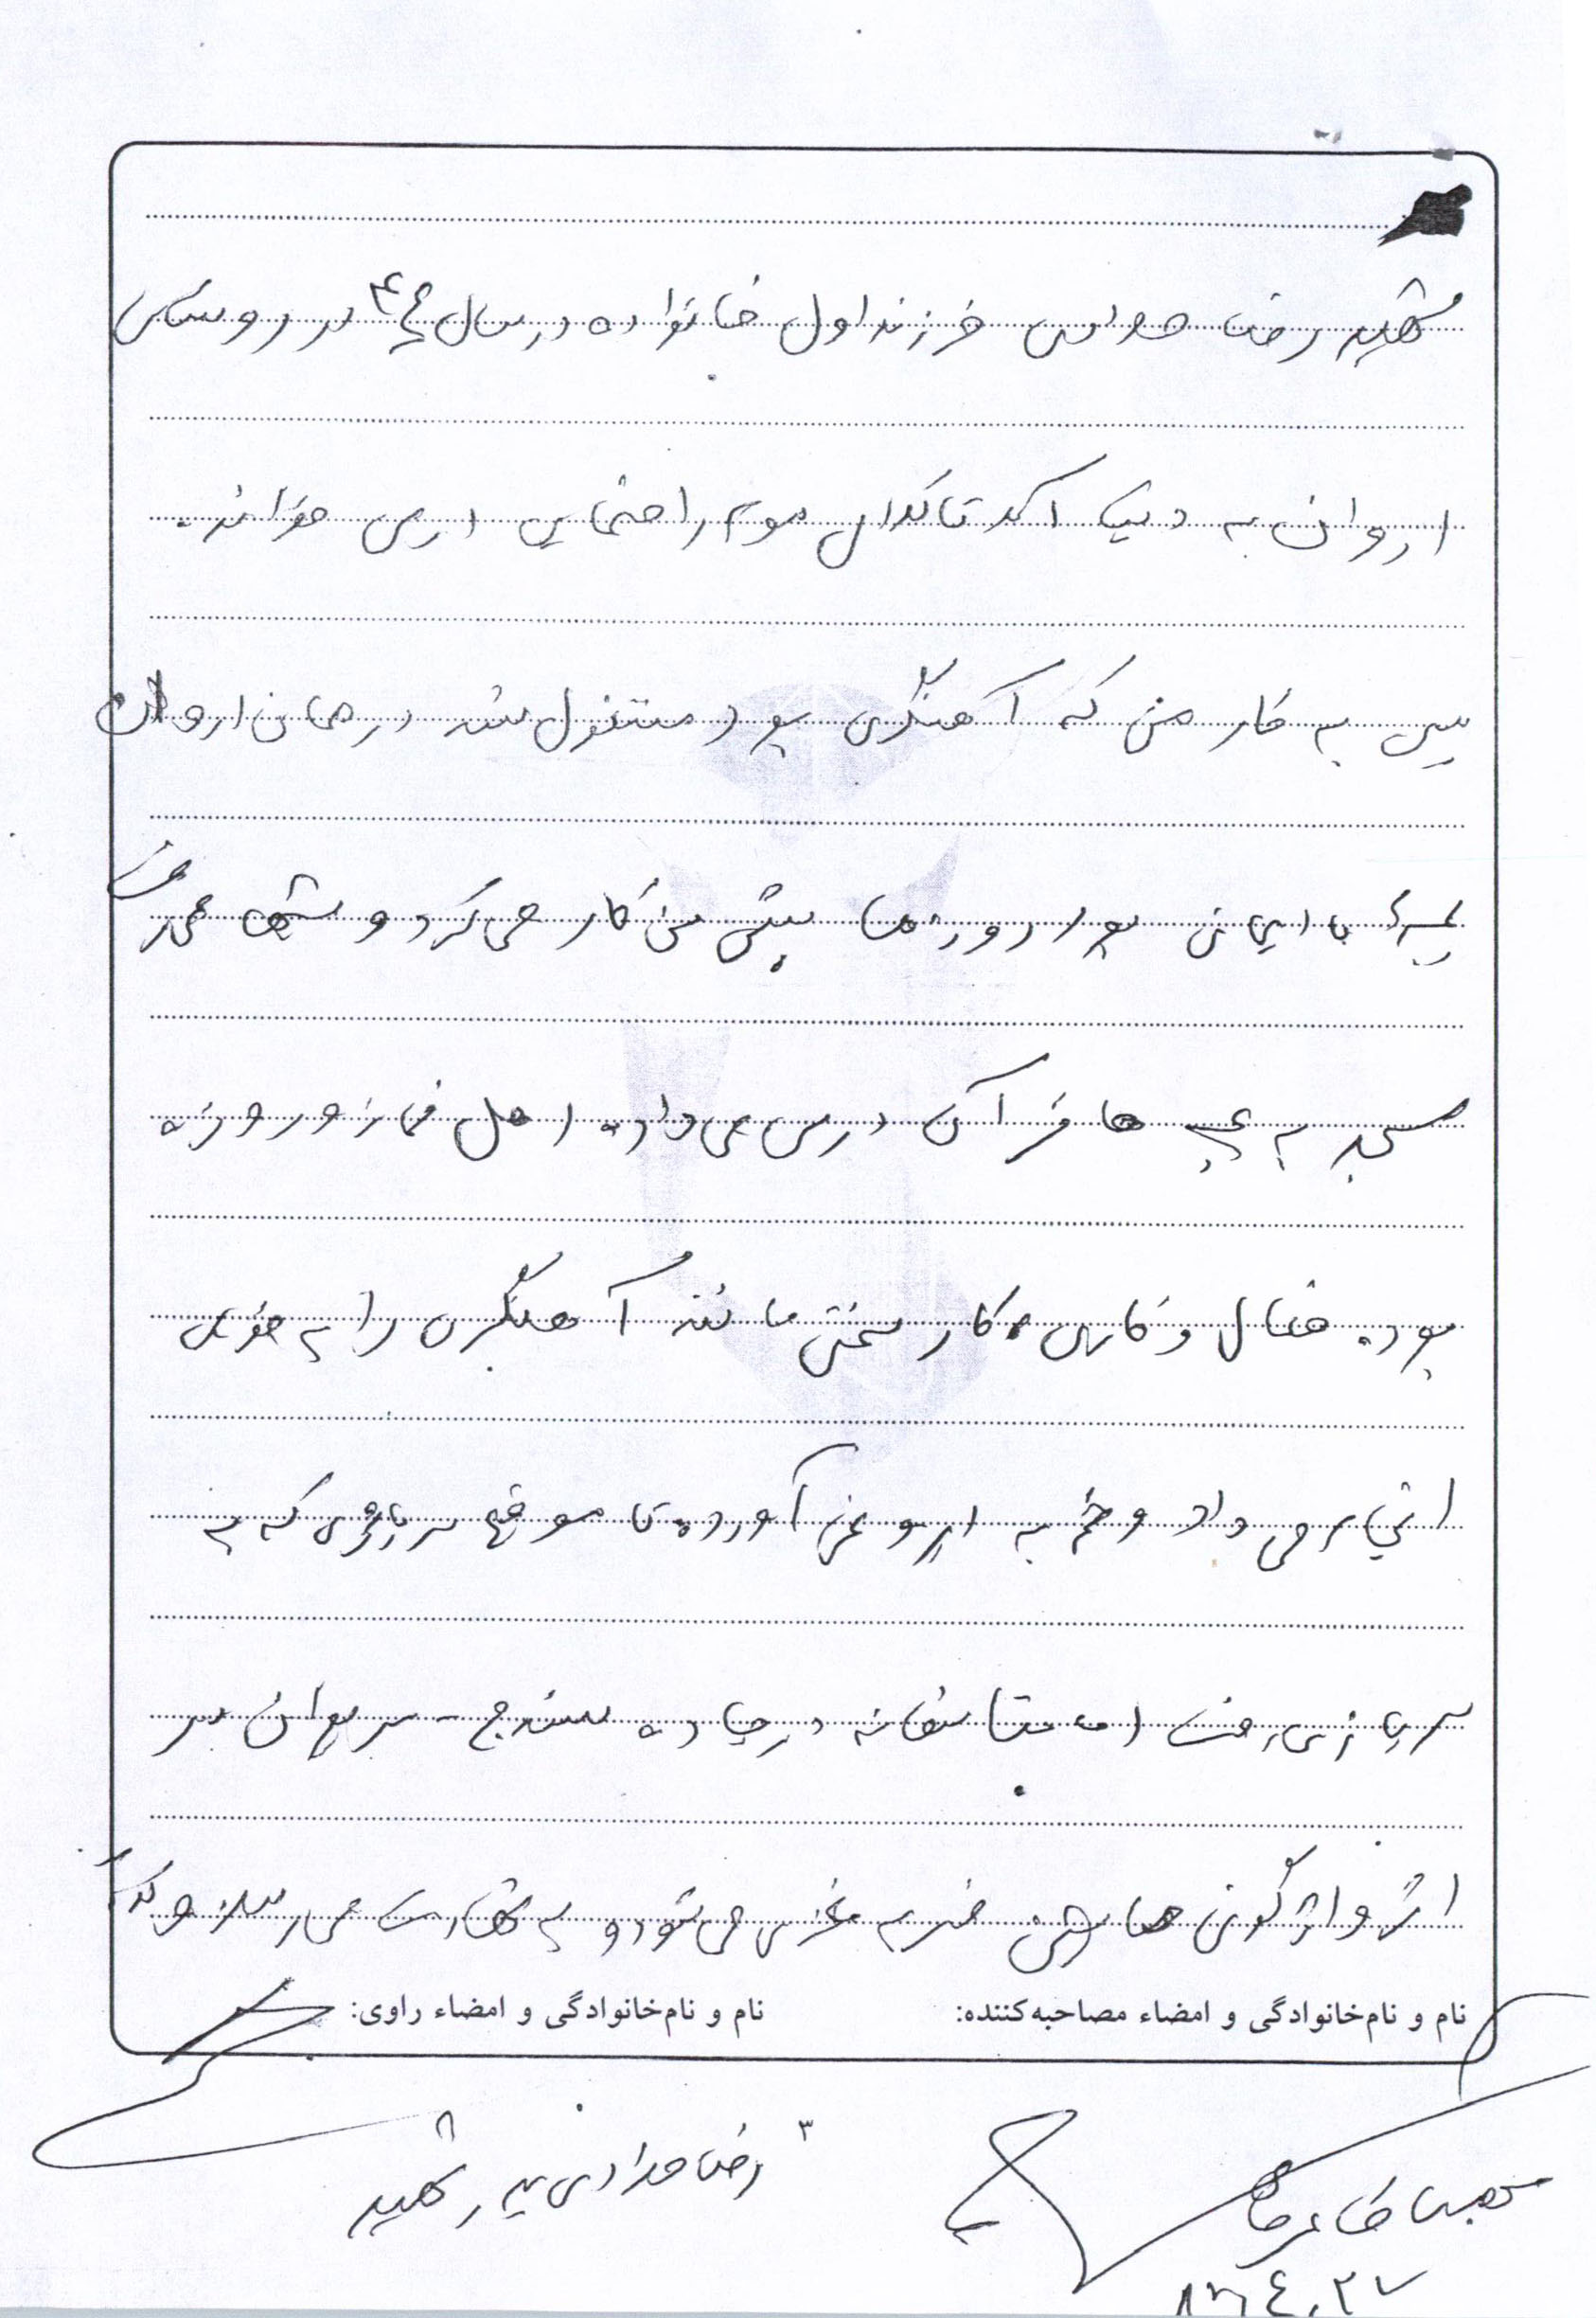 شهید رضا مرادی فرزند اول خانواده در سال ۴۶ در روستای
اروان به دنیا آمد تا کلاس سوم راهنمایی درس خواند.
پس به کار من که آهنگری بود مشغول شد در همان اروان
پسر با ایمانی بود روزها پیش من کار می کرد و شبها می رفت
مسجد به بچه ها قرآن درس می داد. اهل نماز و روزه
بود. فعال و کاری کار سختی مانند آهنگری را به خوبی
انجام می داد و خم به ابرو نمی آورد. تا موقع سربازی که به
سربازی رفت اما متاسفانه در جاده سنندج - مریوان بر
اثر واژگونی ماشین ضربه مغزی می شود و به شهادت می رسد
نام و نام‌خانوادگی و امضاء مصاحبه‌کننده: نام و نام‌خانوادگی و امضاء راوی:
۳
رضا مرادی پدر شهید